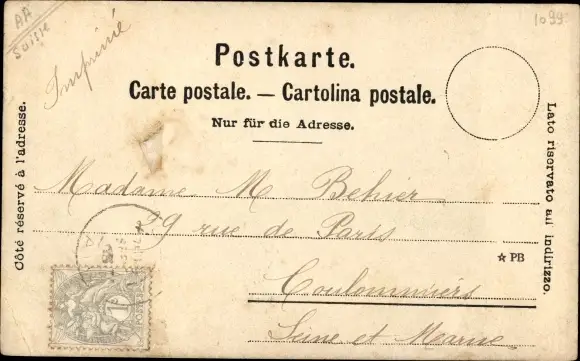 AA
Suisse
1099
Imprimé
Postkarte.
Carte postale. — Cartolina postale.
Nur für die Adresse.
Côté réservé à l'adresse.
Lato riservato all' indirizzo.
Madame M Behier
29 rue de Paris
★ PB
Coulommiers
Seine et Marne
1